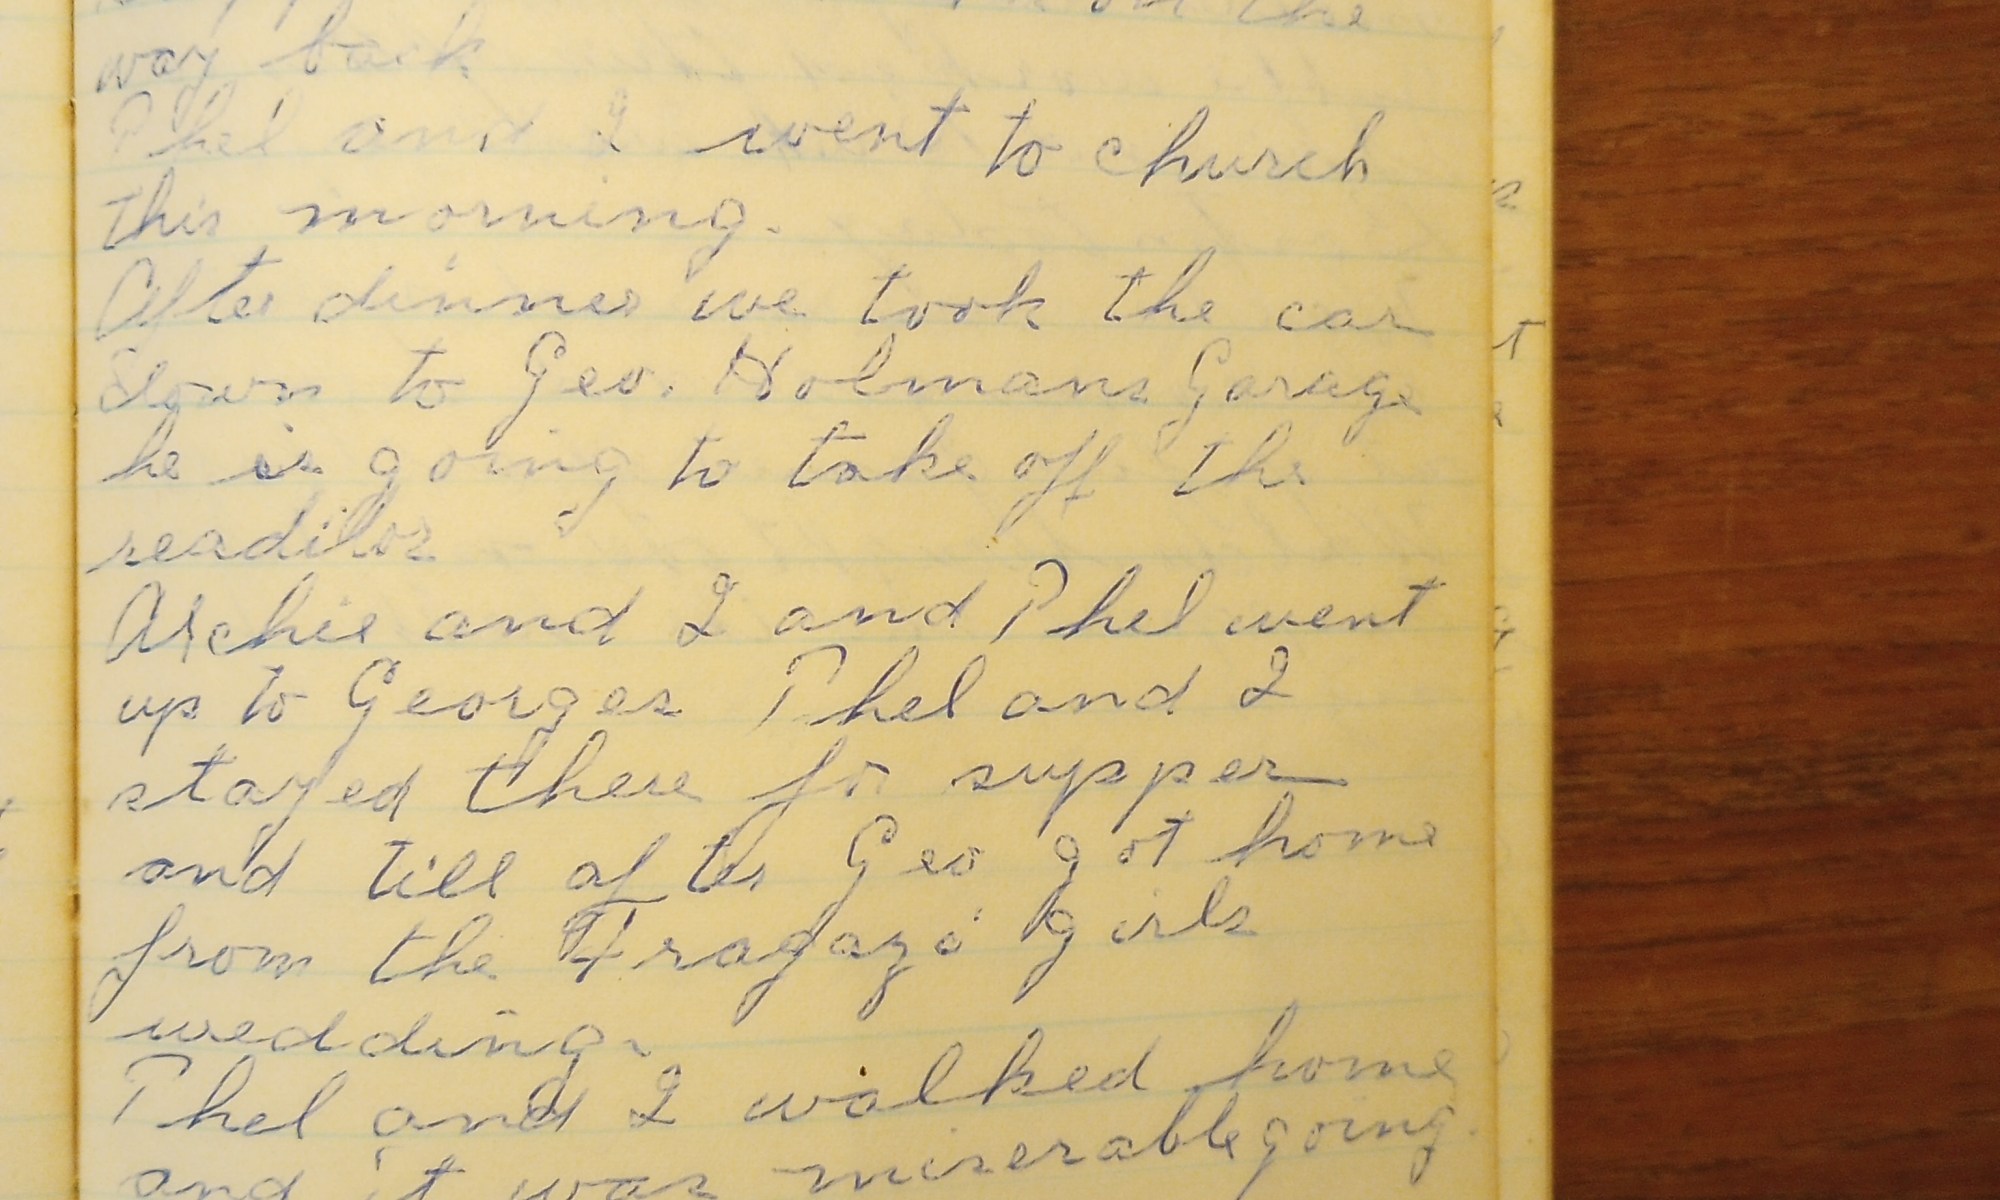 the
way back
Phel and I went to church
this morning.
After dinner we took the car
down to Geo. Holmans Garage
he is going to take off the
readitor
Archie and I and Phel went
up to Georges Phel and I
stayed there for supper
and till after Geo got home
from the girls
wedding.
Phel and I walked home
and it was miserable going.